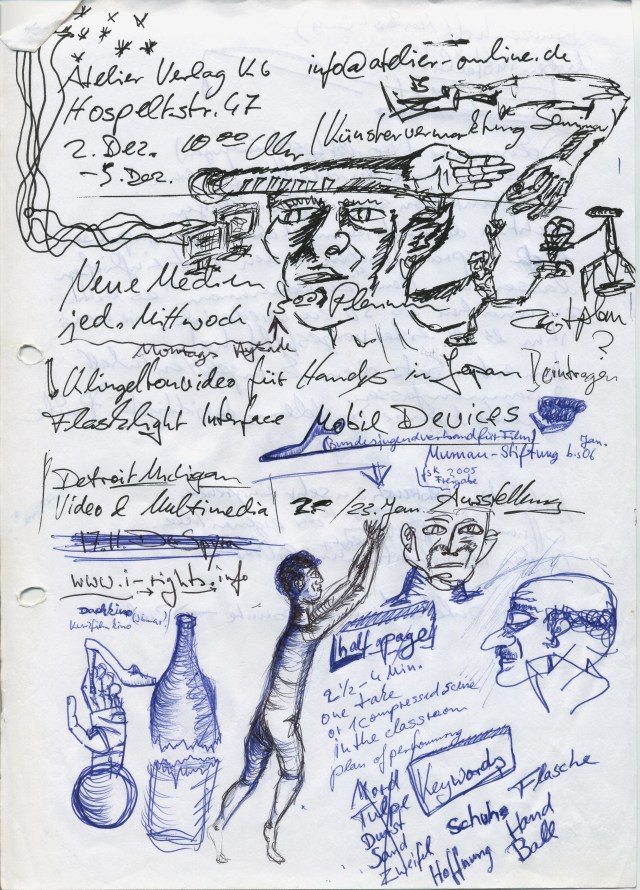 Atelier Verlag KG
info@atelier-online.de
Hospeltstr. 47
2. Dez. 10 00 Uhr (Künstlervermarktung Seminar)
- 5. Dez.
Neue Medien
jed. Mittwoch 15 00 Plenum
Zeitplan
?
Montags Agende
Klingeltonvideo für Handys in Japan Beintragen
Flashlight Interface Mobil Devices
(Bundesjugendverband für Film) Jan.
Murnau-Stiftung bis 06
fsk 2005
Freigabe
Detroit Michigan
Video & Multimedia / 22. Jan. Ausstellung
17.11.
www.i-rights.info
Dachkino
Kurzfilmkino
half a page
2 1/2 - 4 Min.
one take
or 1 compressed scene
in the classroom
plan of performing
Keywords
Mord
Tulpe
Dunst
Sand
Zweifel
Schuhe
Hoffnung
Flasche
Hand
Ball